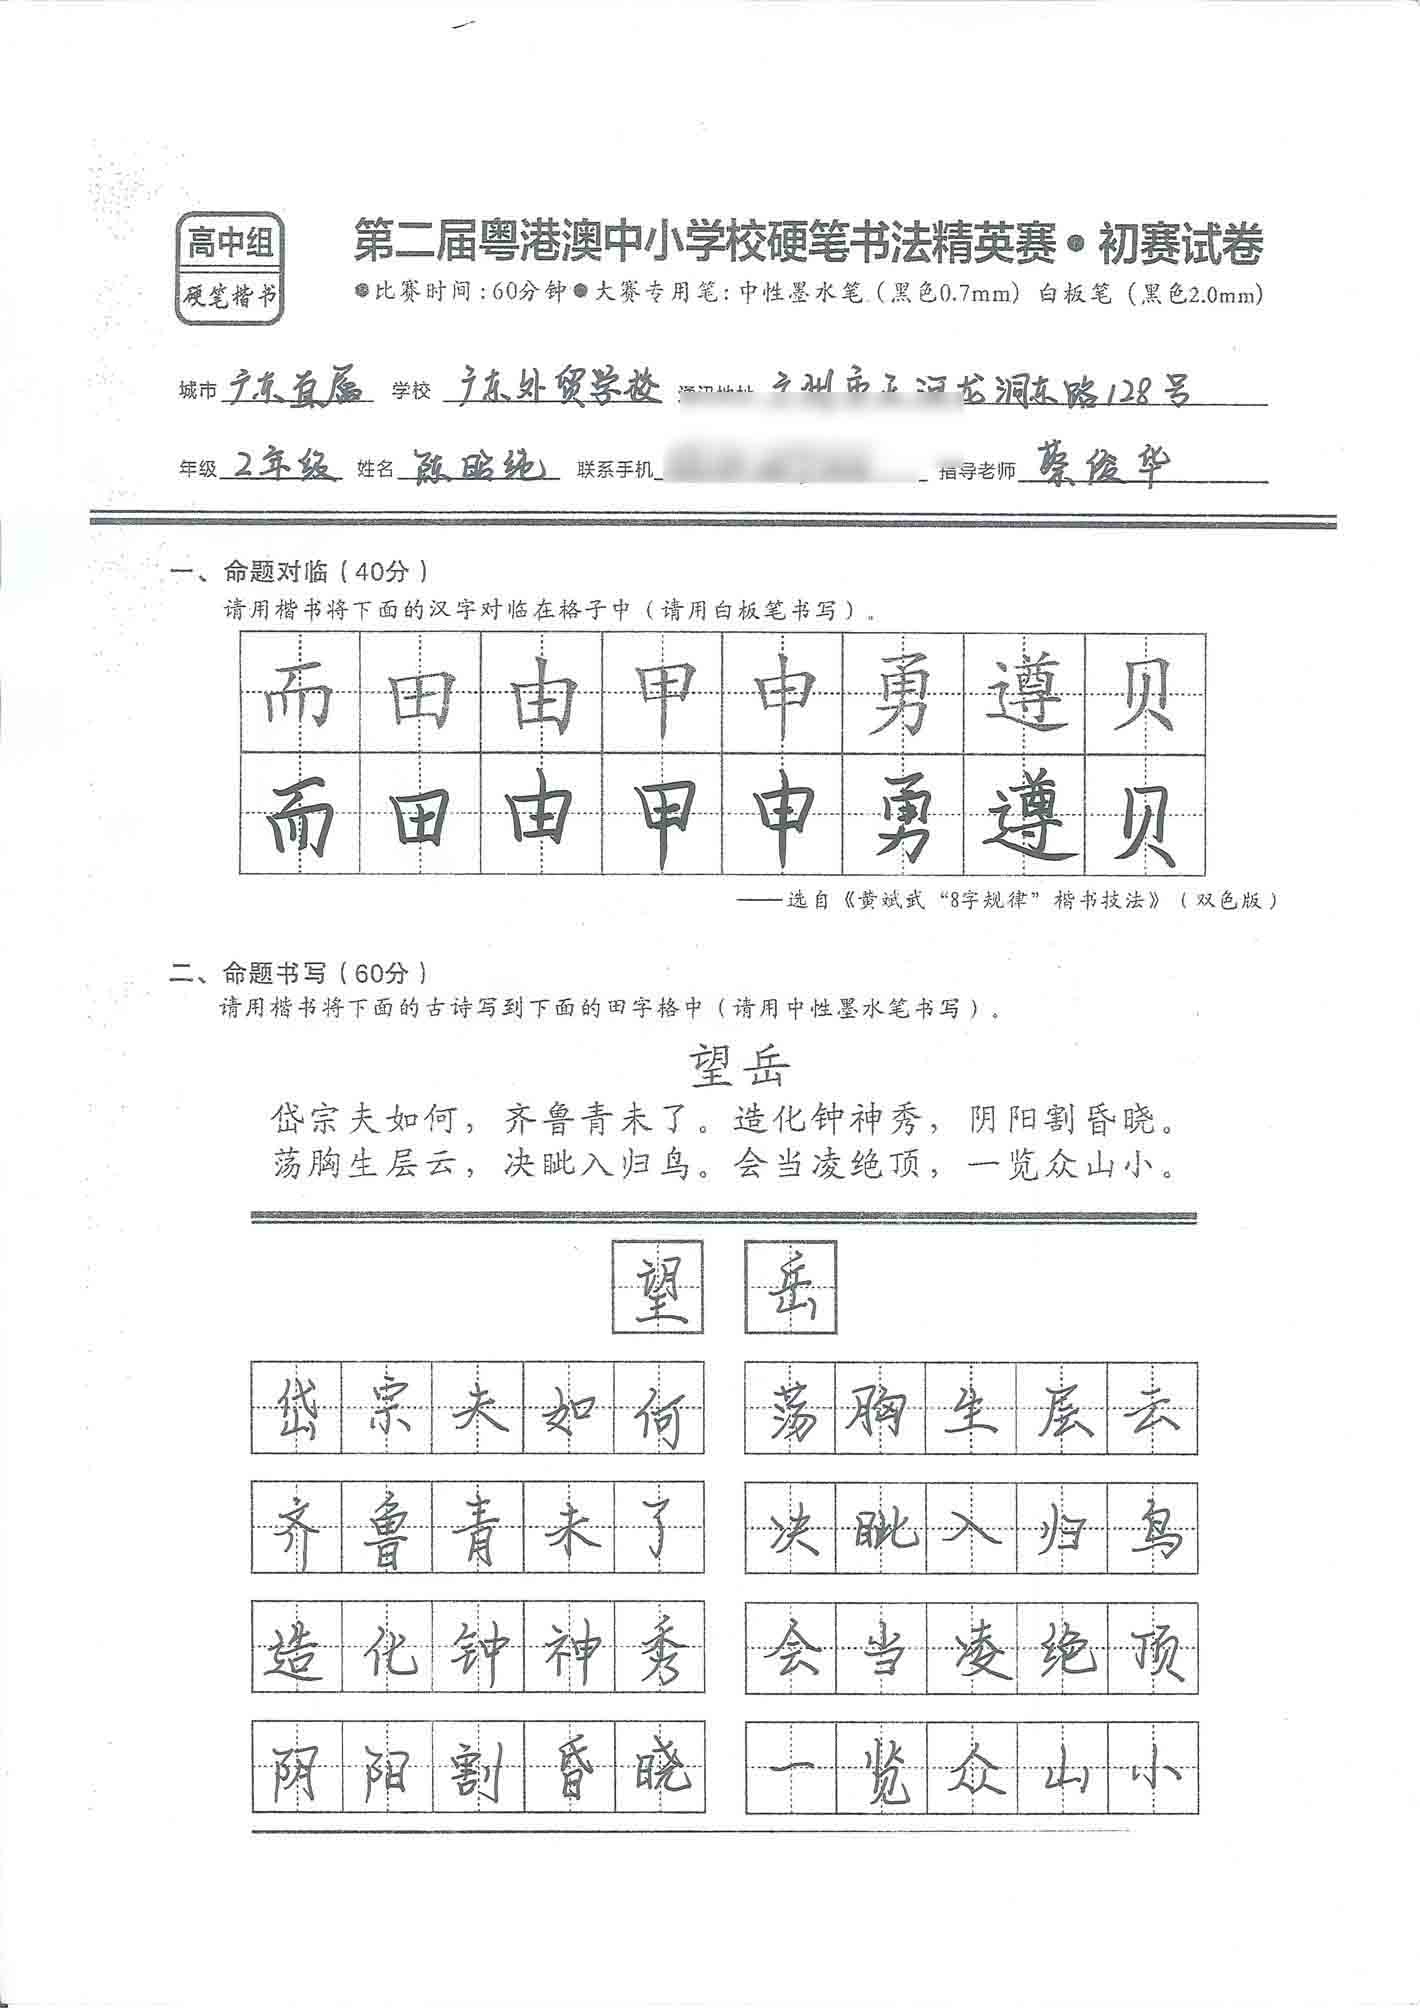 高中组
硬笔楷书
第二届粤港澳中小学校硬笔书法精英赛●初赛试卷
●比赛时间:60分钟●大赛专用笔:中性墨水笔(黑色0.7mm) 白板笔(黑色2.0mm)
城市 广东直属 学校 广东外贸学校 龙洞东路128号
年级 2年级 姓名 陈昭纯 联系手机 指导老师 蔡俊华
一、命题对临(40分)
请用楷书将下面的汉字对临在格子中(请用白板笔书写)。
而田由甲申勇遵贝
而田由甲申勇遵贝
——选自《黄斌武“8字规律”楷书技法》(双色版)
二、命题书写(60分)
请用楷书将下面的古诗写到下面的田字格中(请用中性墨水笔书写)。
望岳
岱宗夫如何，齐鲁青未了。造化钟神秀，阴阳割昏晓。
荡胸生层云，决眦入归鸟。会当凌绝顶，一览众山小。
望岳
岱宗夫如何 荡胸生层云
齐鲁青未了 决眦入归鸟
造化钟神秀 会当凌绝顶
阴阳割昏晓 一览众山小